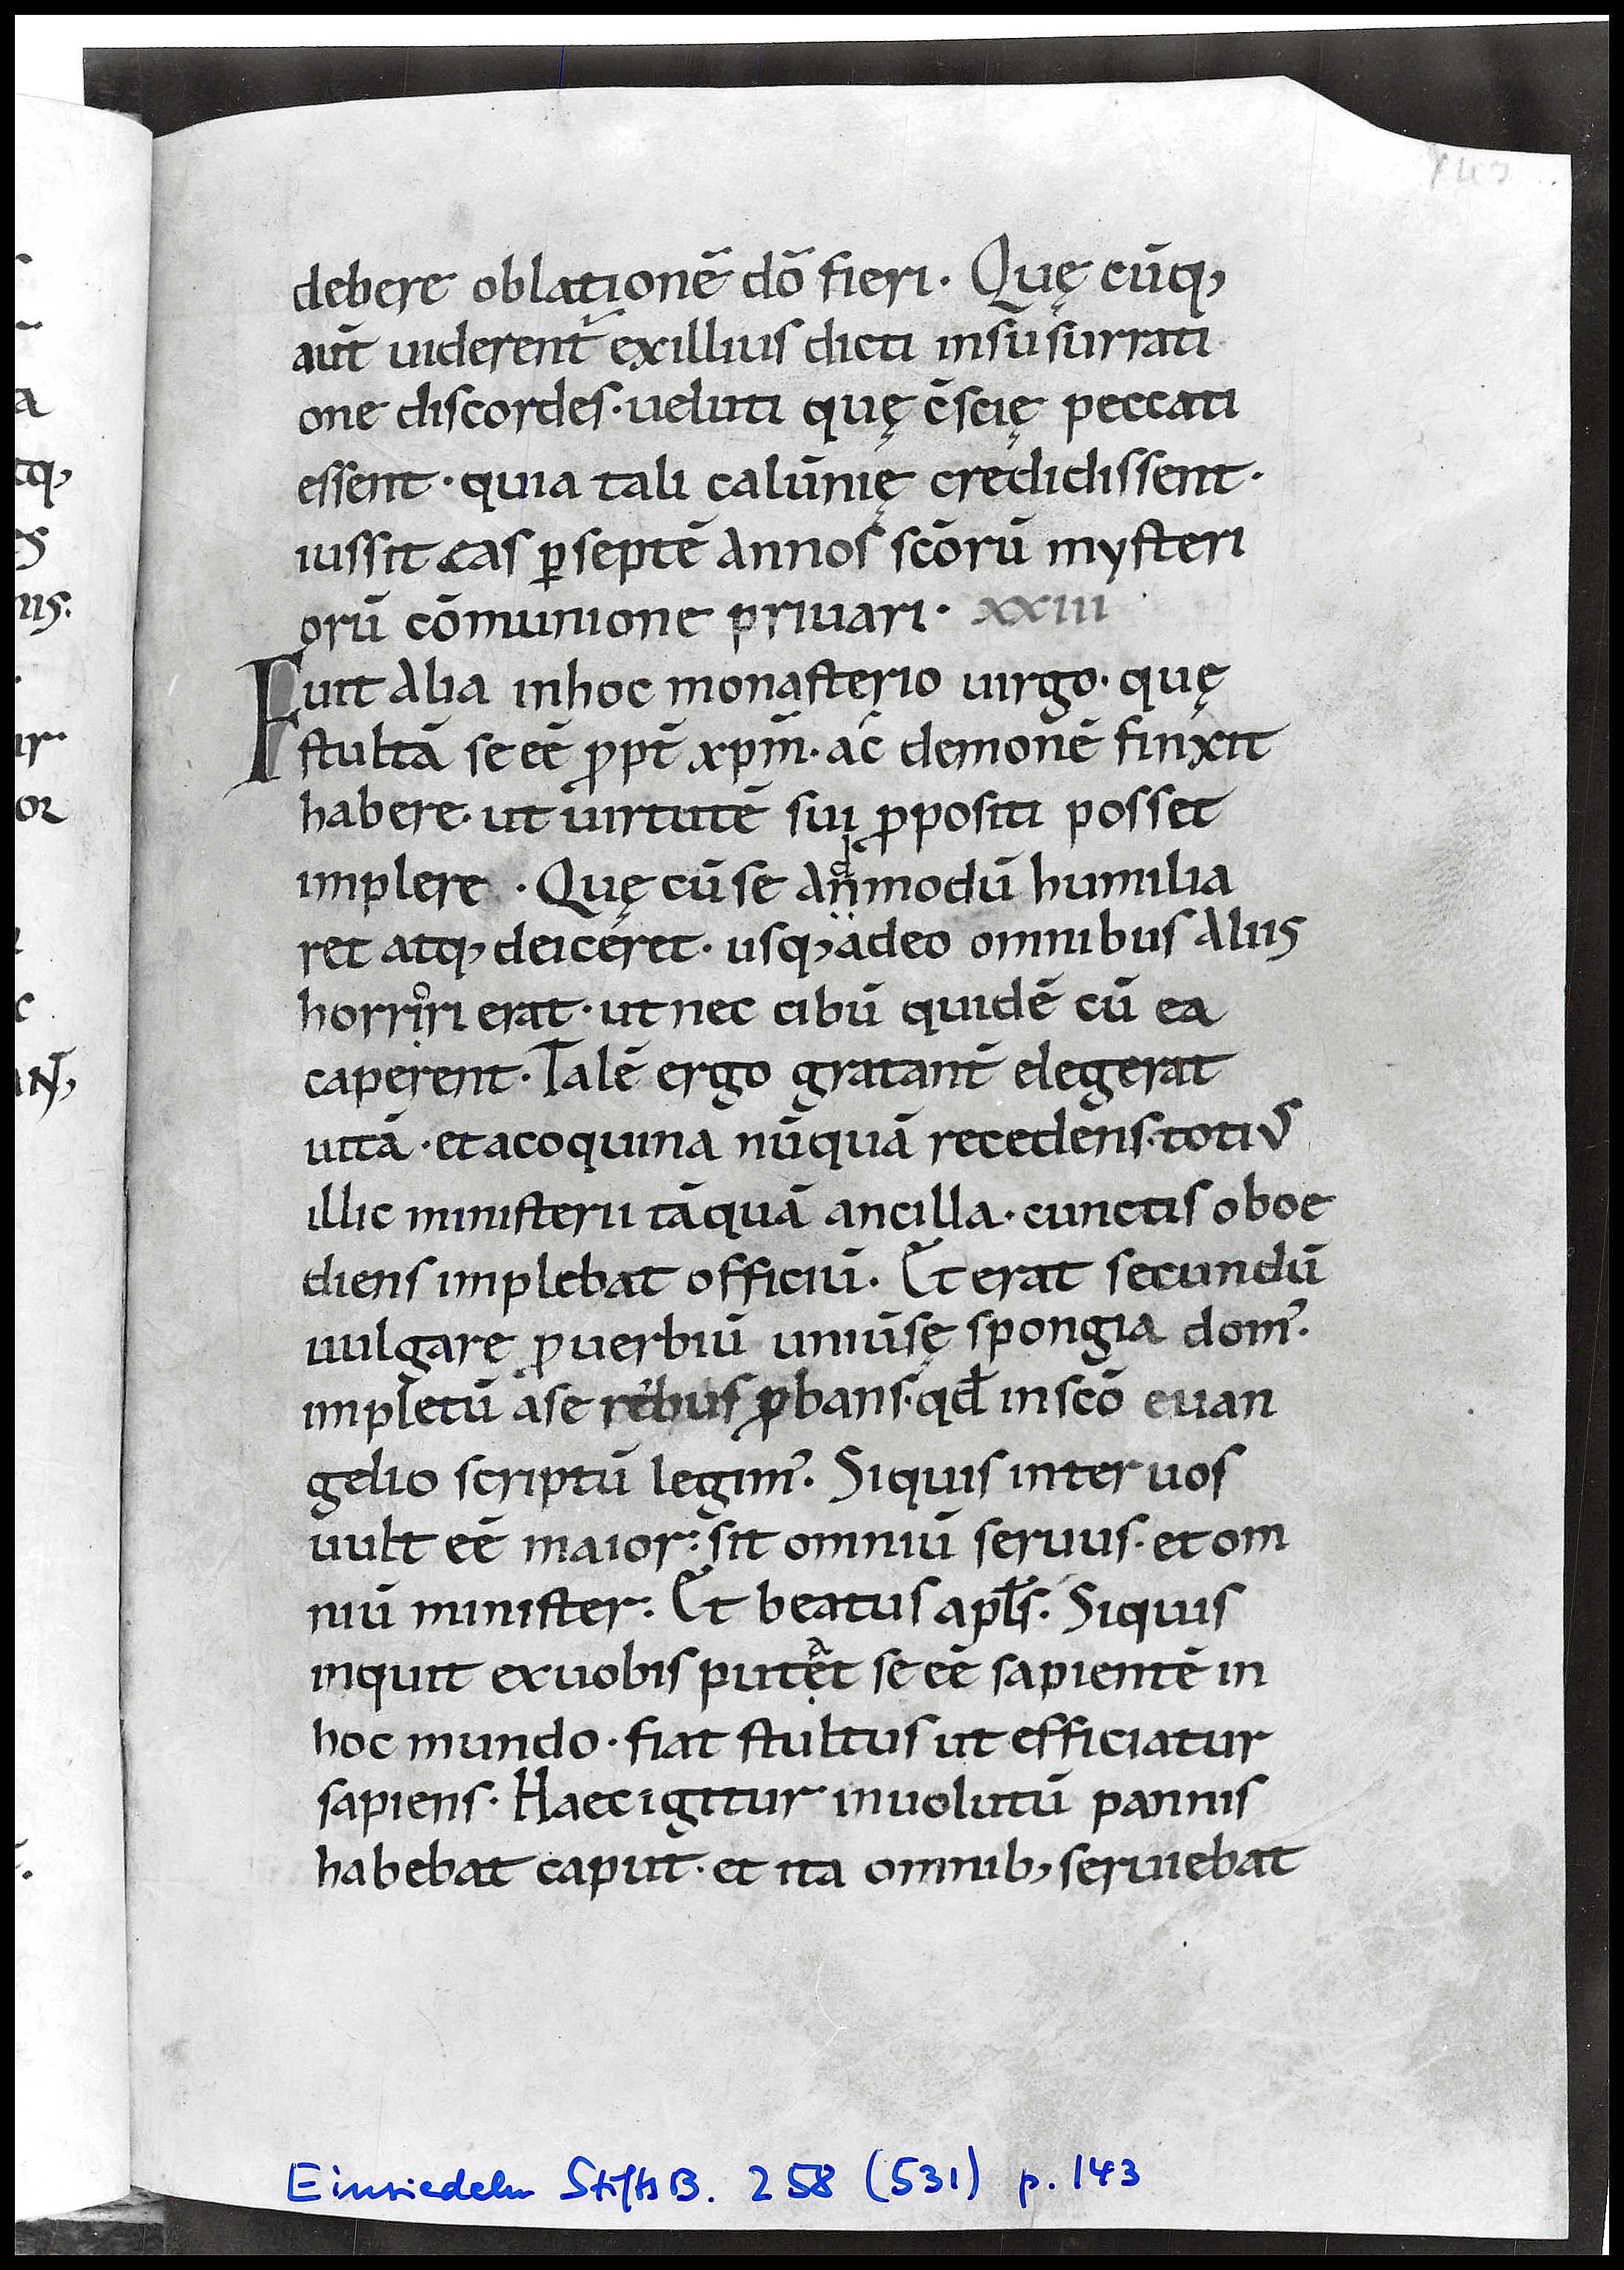 143
debere oblationē dō fieri. Quę cūq;
aut̄ uiderent᷑ exillius dicti insusurrati
one discordes · ueluti quę c̄scię peccati
essent · quia tali calūnię credidissent ·
iussit eas ꝑseptē annos scōrū mysteri
orū cōmunione priuari · xxiii
Fuit alia inhoc monasterio uirgo · quę
stultā se eē ꝓpt̄ xp̄m · ac̄ demonē finxit
habere · ut uirtutē sui ꝓpositi posset
implere · Quę cūse anmodū humilia
ret atq; deiceret · usq; adeo omnibus aliis
horrori erat · ut nec cibū quidē cū ea
caperent · Talē ergo gratant̄ elegerat
uitā · et acoquina nūquā recedens · totiꝰ
illic ministerii tāquā ancilla · cunctis oboe
diens implebat officiū. Et erat secundū
uulgare ꝓuerbiū uniuersę spongia domꝰ.
impletū ase rebus ꝓbans · qđ inscō euan
gelio scriptū legimꝰ. Siquis inter uos
uult eē maior: sit omniū seruus · et om
niū minister. Et beatus apl̄s. Siquis
inquit exuobis putat se eē sapientē in
hoc mundo · fiat stultus ut efficiatur
sapiens · Haec igitur inuolutū pannis
habebat caput · et ita omnib; seruiebat
Einsiedeln StiftsB. 258 (531) p. 143